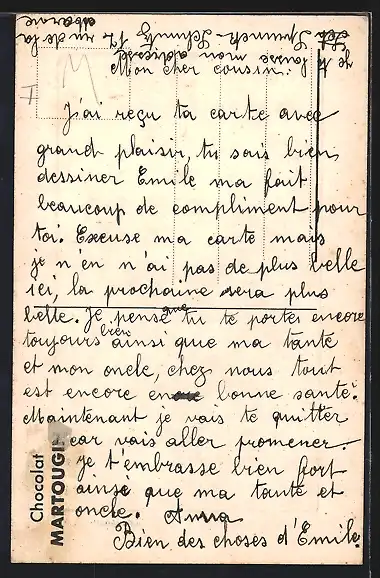 Mon cher cousin.
J'ai reçu ta carte avec
grand plaisir, tu sais bien
dessiner Emile ma fait
beaucoup de compliment pour
toi. Excuse ma carte mais
je n'en n'ai pas de plus belle
ici, la prochaine sera plus
belle. Je pense que tu te portes encore
toujours bien ainsi que ma tante
et mon oncle, chez nous tout
est encore en bonne santé.
Maintenant je vais te quitter
car vais aller promener.
je t'embrasse bien fort
ainsi que ma tante et
oncle. Anna
Bien des choses d'Emile.
Je te laisse mon adresse
Schmitz 17 rue de la
Chocolat
MARTOUGIN